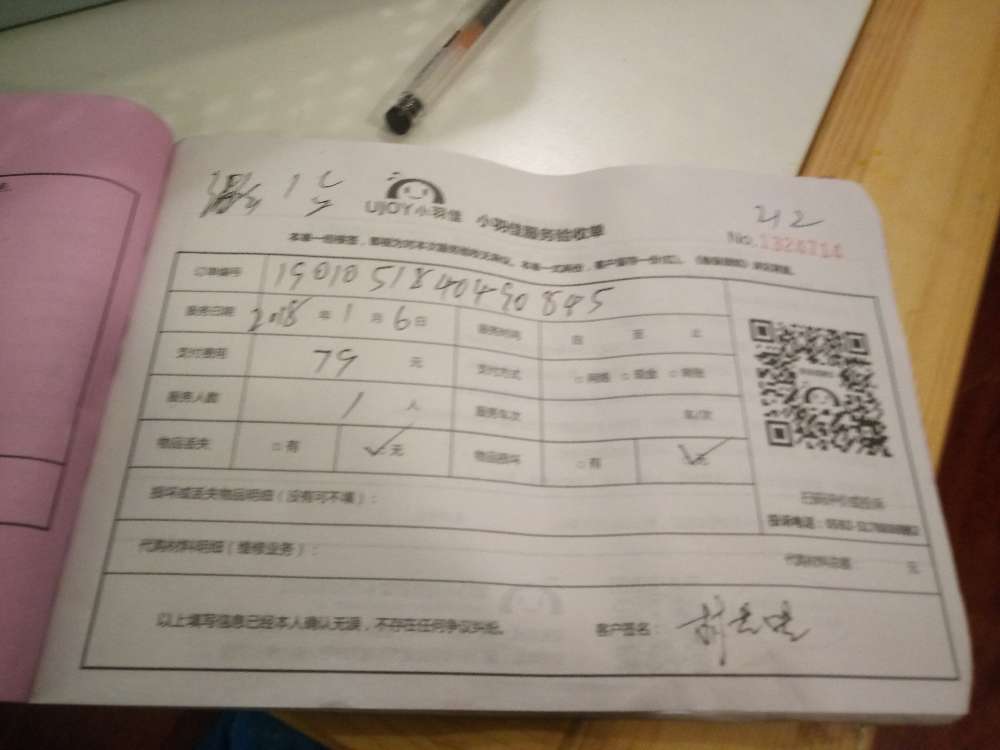 UJOY小羽佳 小羽佳服务验收单
212
No.1324714
订单编号 190105184040490845
服务日期 2018 年 1 月 6 日 服务时间 自 至 止
支付费用 79 元 支付方式 □网络 □现金 □转账
服务人数 1 人 服务车次 车/次
物品丢失 □有 ✓无 物品损坏 □有 ✓无
损坏或丢失物品明细(没有可不填):
扫码评价或投诉
代购材料明细(维修业务): 代购材料总额: 元
以上填写信息已经本人确认无误,不存在任何争议纠纷。 客户签名: